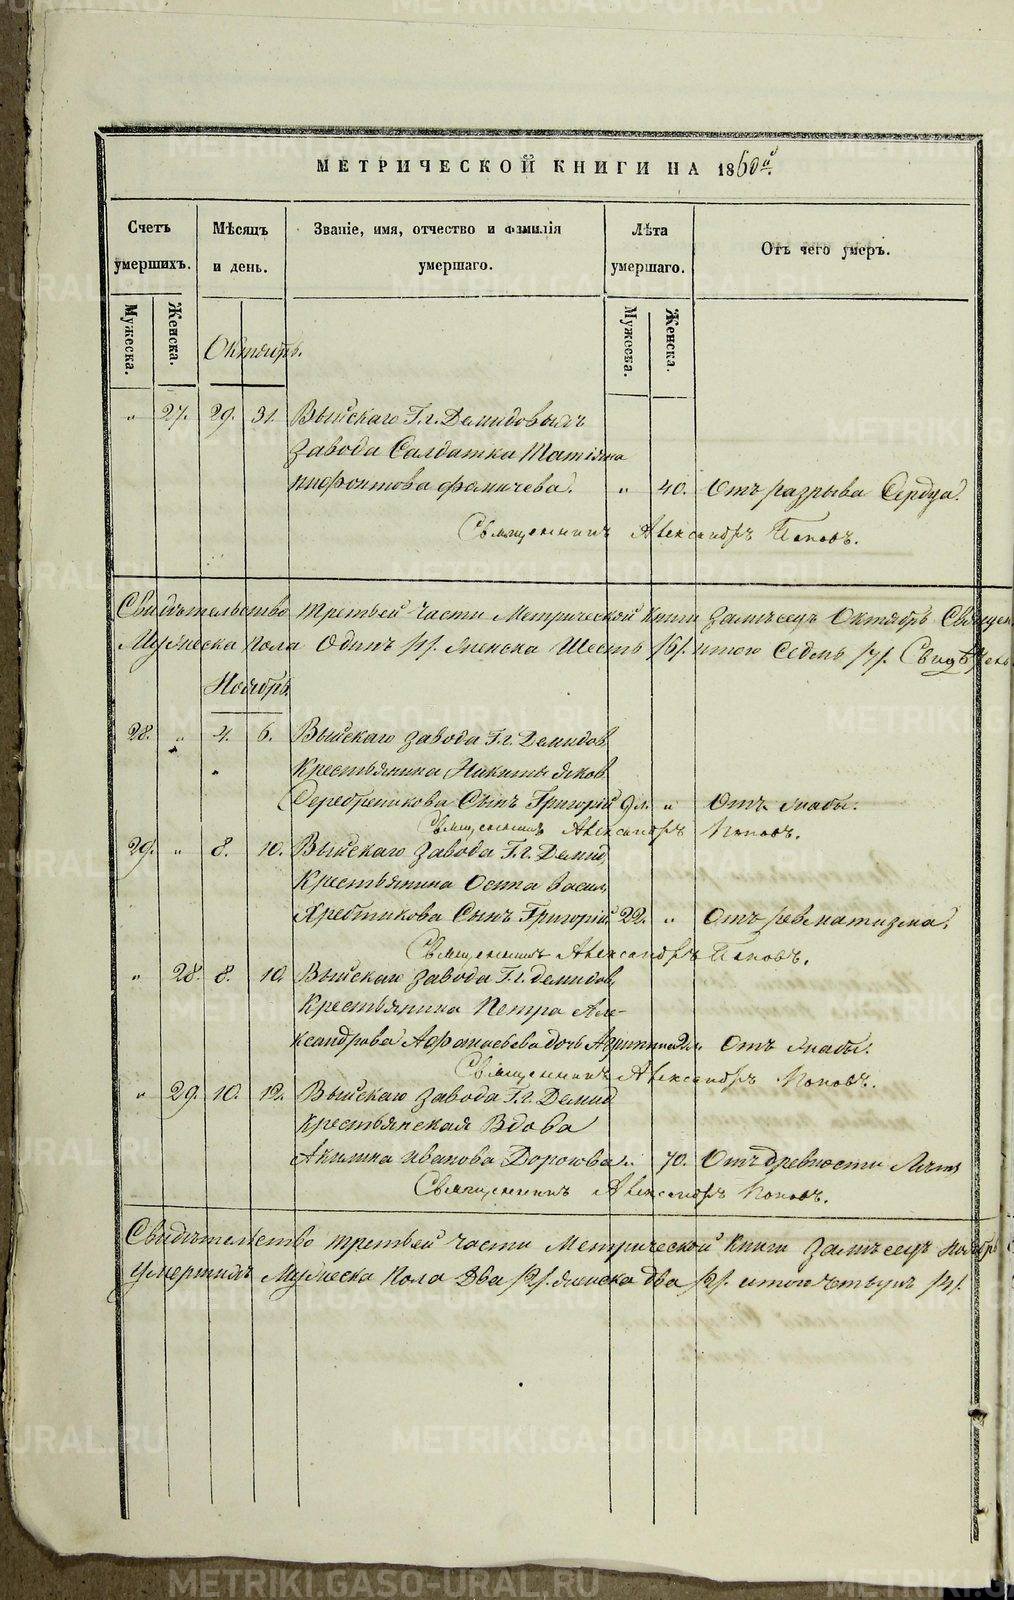 МЕТРИЧЕСКОЙ КНИГИ НА 1860й
Счетъ умершихъ.
Мѣсяцъ и день.
Званіе, имя, отчество и фамилія умершаго.
Лѣта умершаго.
Отъ чего умеръ.
Мужеска.
Женска.
Мужеска.
Женска.
Октябрь.
" 27. 29. 31. Выйскаго Г.г. Демидовыхъ
завода Салдатка Татіяна
Нифонтова Фомичева. " 40. Отъ разрыва Сердца.
Священникъ Александръ Поповъ.
Свидѣтельство третьей части Метрической Книги за мѣсецъ Октябрь
Мужеска пола Одинъ /1/. женска Шесть /6/. итого Седмь /7/.
Ноябрь.
28. " 4. 6. Выйскаго завода Г.г. Демидов
Крестьянина Никиты Яков
Серебреникова Сынъ Григорій 9 " Отъ жабы.
Священникъ Александръ Поповъ.
29. " 8. 10. Выйскаго завода Г.г. Демид
Крестьянина Осипа Васил
Хребтикова Сынъ Григорій 22. " Отъ ревматизма.
Священникъ Александръ Поповъ.
" 28 8. 10. Выйскаго завода Г.г. Демидов
Крестьянина Петра Але-
ксандрова Афанасьева дочь Отъ жабы.
Священникъ Александръ Поповъ.
" 29. 10. 12. Выйскаго завода Г.г. Демид
Крестьянская Вдова
Акилина Иванова " 70. Отъ древности Лѣтъ
Священникъ Александръ Поповъ.
Свидѣтельство третьей части Метрической Книги за мѣсецъ Ноябрь
Умершихъ Мужеска пола Два /2/. женска два /2/. итого четыре /4/.
METRIKI.GASO-URAL.RU